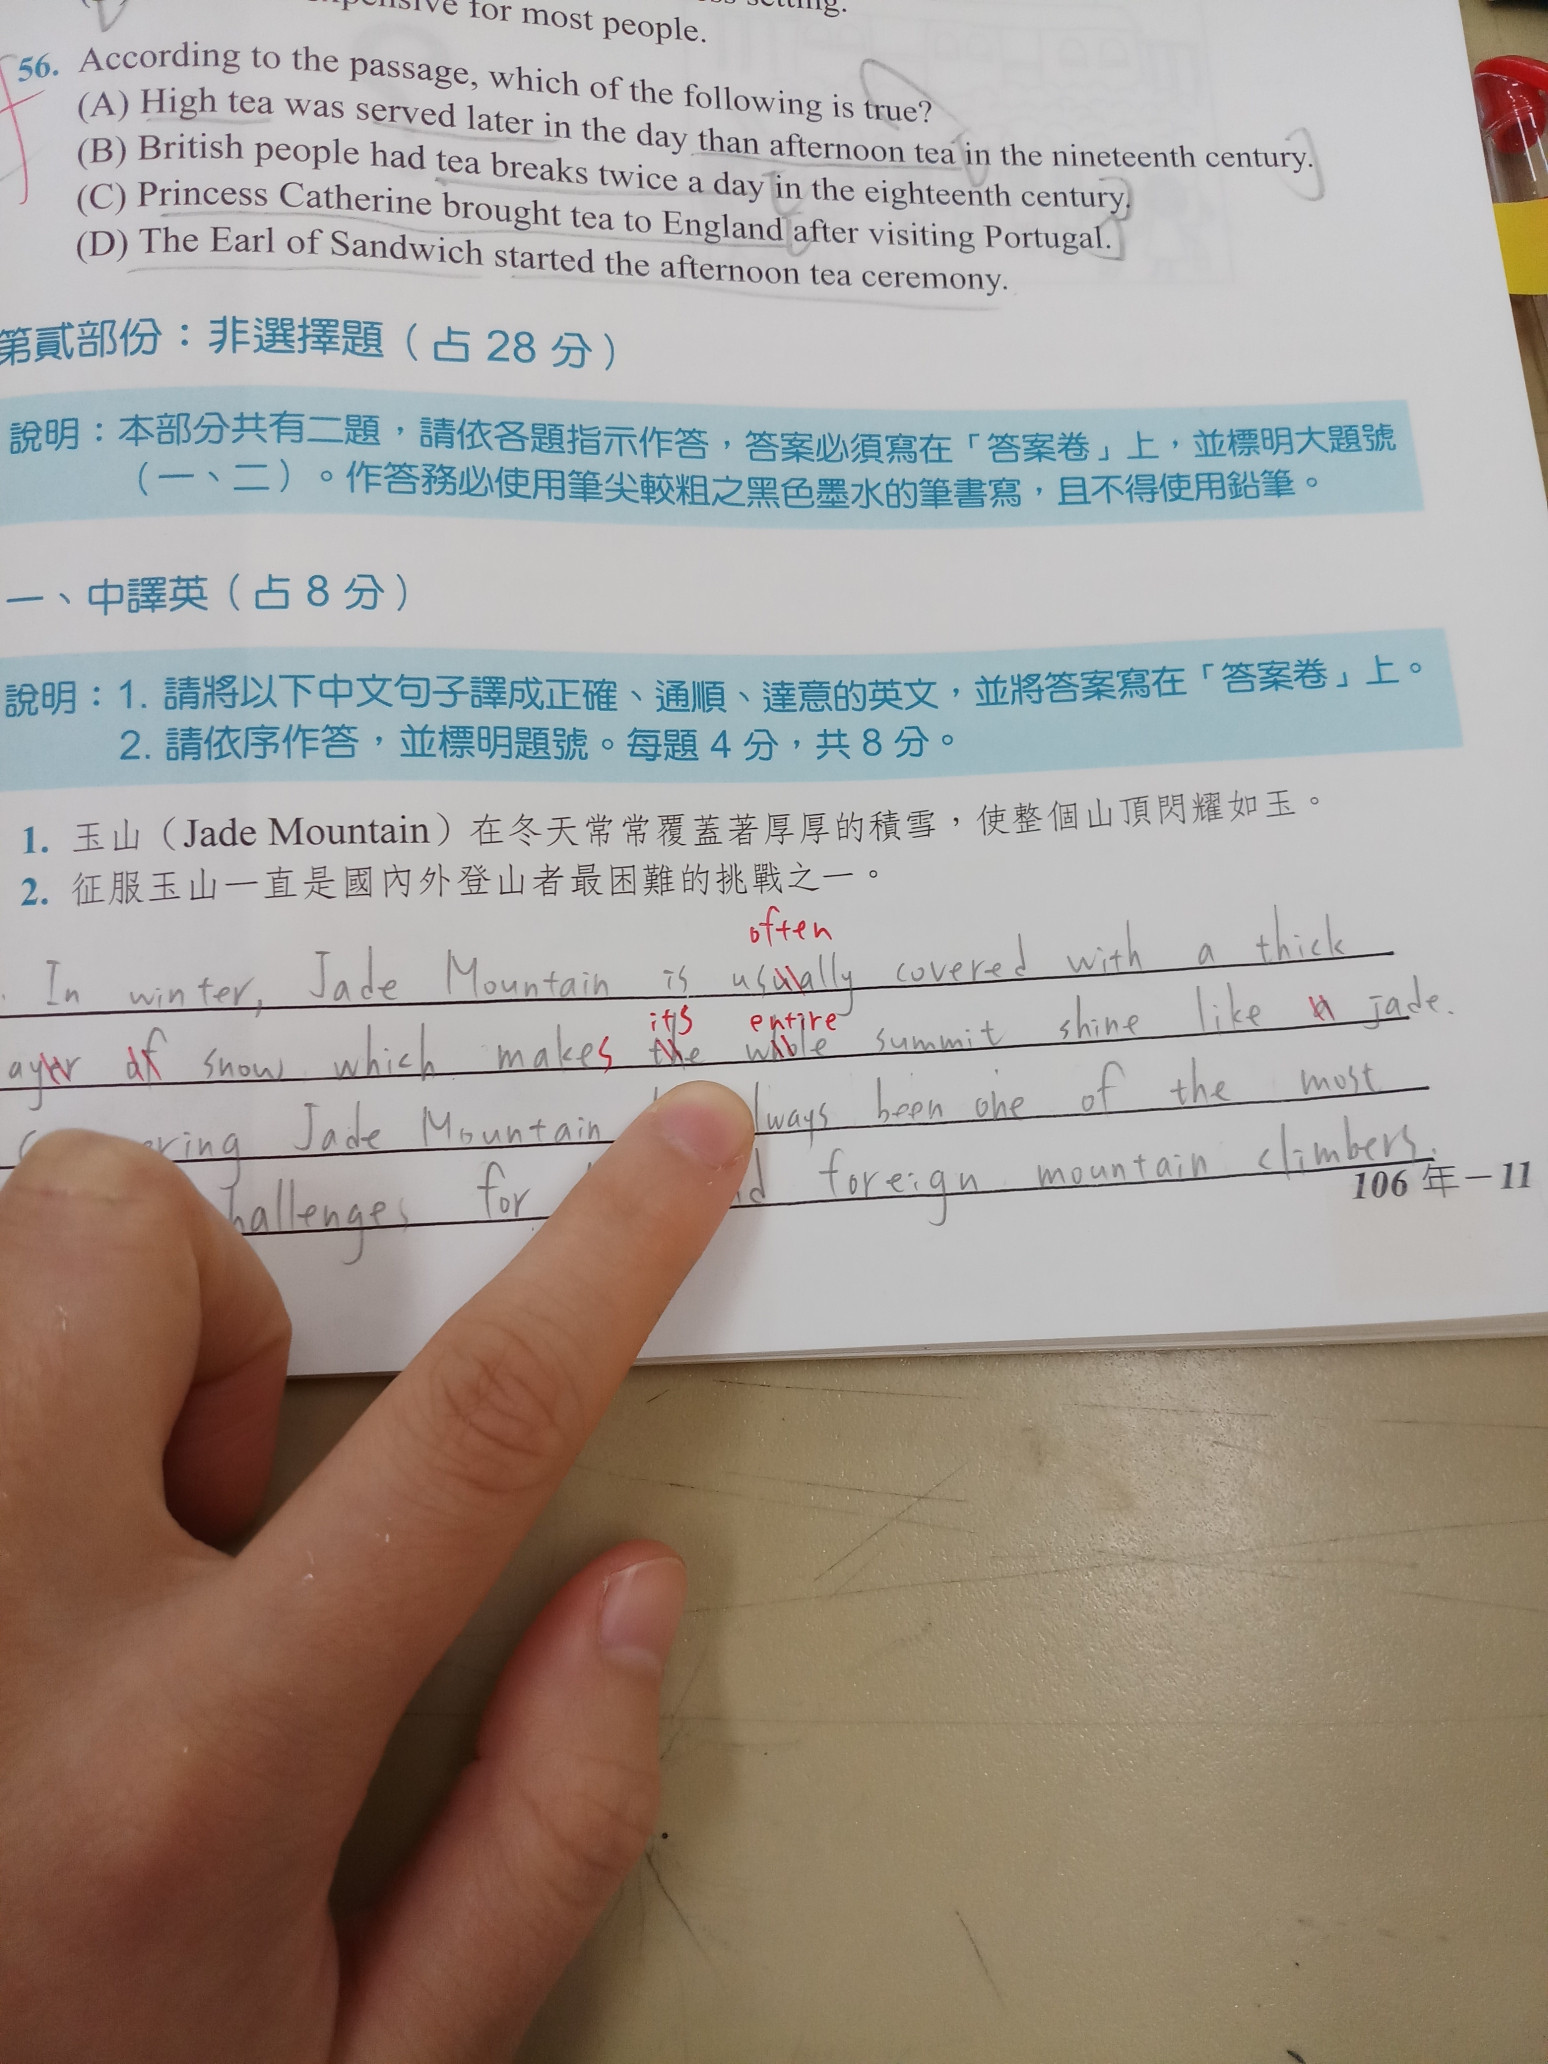 for most people.
56. According to the passage, which of the following is true?
(A) High tea was served later in the day than afternoon tea in the nineteenth century.
(B) British people had tea breaks twice a day in the eighteenth century.
(C) Princess Catherine brought tea to England after visiting Portugal.
(D) The Earl of Sandwich started the afternoon tea ceremony.
第貳部份：非選擇題（占 28 分）
說明：本部分共有二題，請依各題指示作答，答案必須寫在「答案卷」上，並標明大題號
（一、二）。作答務必使用筆尖較粗之黑色墨水的筆書寫，且不得使用鉛筆。
一、中譯英（占 8 分）
說明：1. 請將以下中文句子譯成正確、通順、達意的英文，並將答案寫在「答案卷」上。
2. 請依序作答，並標明題號。每題 4 分，共 8 分。
1. 玉山（Jade Mountain）在冬天常常覆蓋著厚厚的積雪，使整個山頂閃耀如玉。
2. 征服玉山一直是國內外登山者最困難的挑戰之一。
often
In winter, Jade Mountain is usually covered with a thick
its entire
ayer of snow which makes the whole summit shine like a jade.
ering Jade Mountain lways been one of the most
hallenges for foreign mountain climbers.
106 年－11